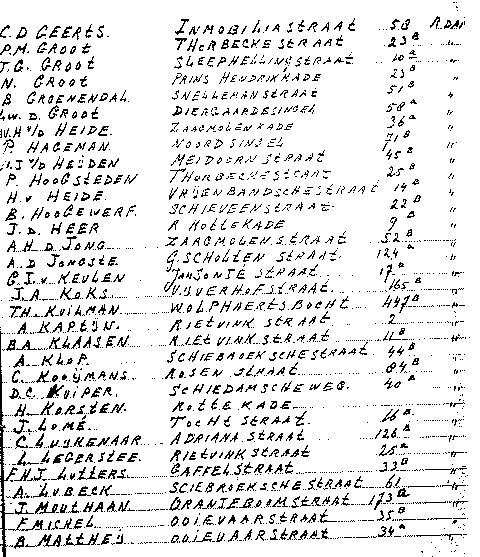 C.D GEERTS. INMOBILIASTRAAT 5B R.DAM
P.M. GROOT THORBECKESTRAAT 23B "
J.G. GROOT SLEEPHELLINGSTRAAT 10a "
N. GROOT PRINS HENDRIKKADE 23B
B GROENENDAL SNELLEMANSTRAAT 51B "
Lw. D. GROOT DIERGAARDESINGEL 58a "
W.H v/D HEIDE. ZAAGMOLENKADE 36a "
P. HAGEMAN NOORDSINGEL 71B "
v/D HEIJDEN MEIDOORNSTRAAT 45B "
P. HOOGSTEDEN THORBECKESTRAAT 25B "
H. v HEIDE. VRIJENBANDSCHESTRAAT 14B "
B. HOOGEWERF. SCHIEVEENSTRAAT. 22B "
J.D. HEER R KOTTEKADE 9a "
A.H.D JONG ZAAGMOLENSTRAAT 52B "
A.D JONGSTE G.SCHOLTEN STRAAT. 124a "
G.J.v KEULEN JANSONIE STRAAT 17a "
J.A KOKS VIJVERHOFSTRAAT. 165B "
TH. KUILMAN WOLPHAERTSBOCHT 447B "
A KAPTIJN. RIETVINK STRAAT 2 "
B.A KLAASEN RIETVINK STRAAT 11B "
A KLOP. SCHIEBROEKSCHESTRAAT 44B "
C. KOOIJMANS ROSEN STRAAT 84B "
D.C. KUIPER. SCHIEDAMSCHEWEG. 40a "
H. KORSTEN. KOTTEKADE
J. LOMÉ. TOCHTSTRAAT. 16a "
C. LUIJKENAAR ADRIANASTRAAT 126B "
L. LEGERSTEE. RIETVINKSTRAAT 25a "
F.H.J LUTTERS. GAFFELSTRAAT 33B "
A. LUBECK SCIEBROEKSCHE STRAAT 61 "
J. MOUTHAAN ORANJEBOOMSTRAAT 173B "
F. MICHEL OOIEVAARSTRAAT 35B "
B. MATTHEIJ OOIEVAARSTRAAT 34a "